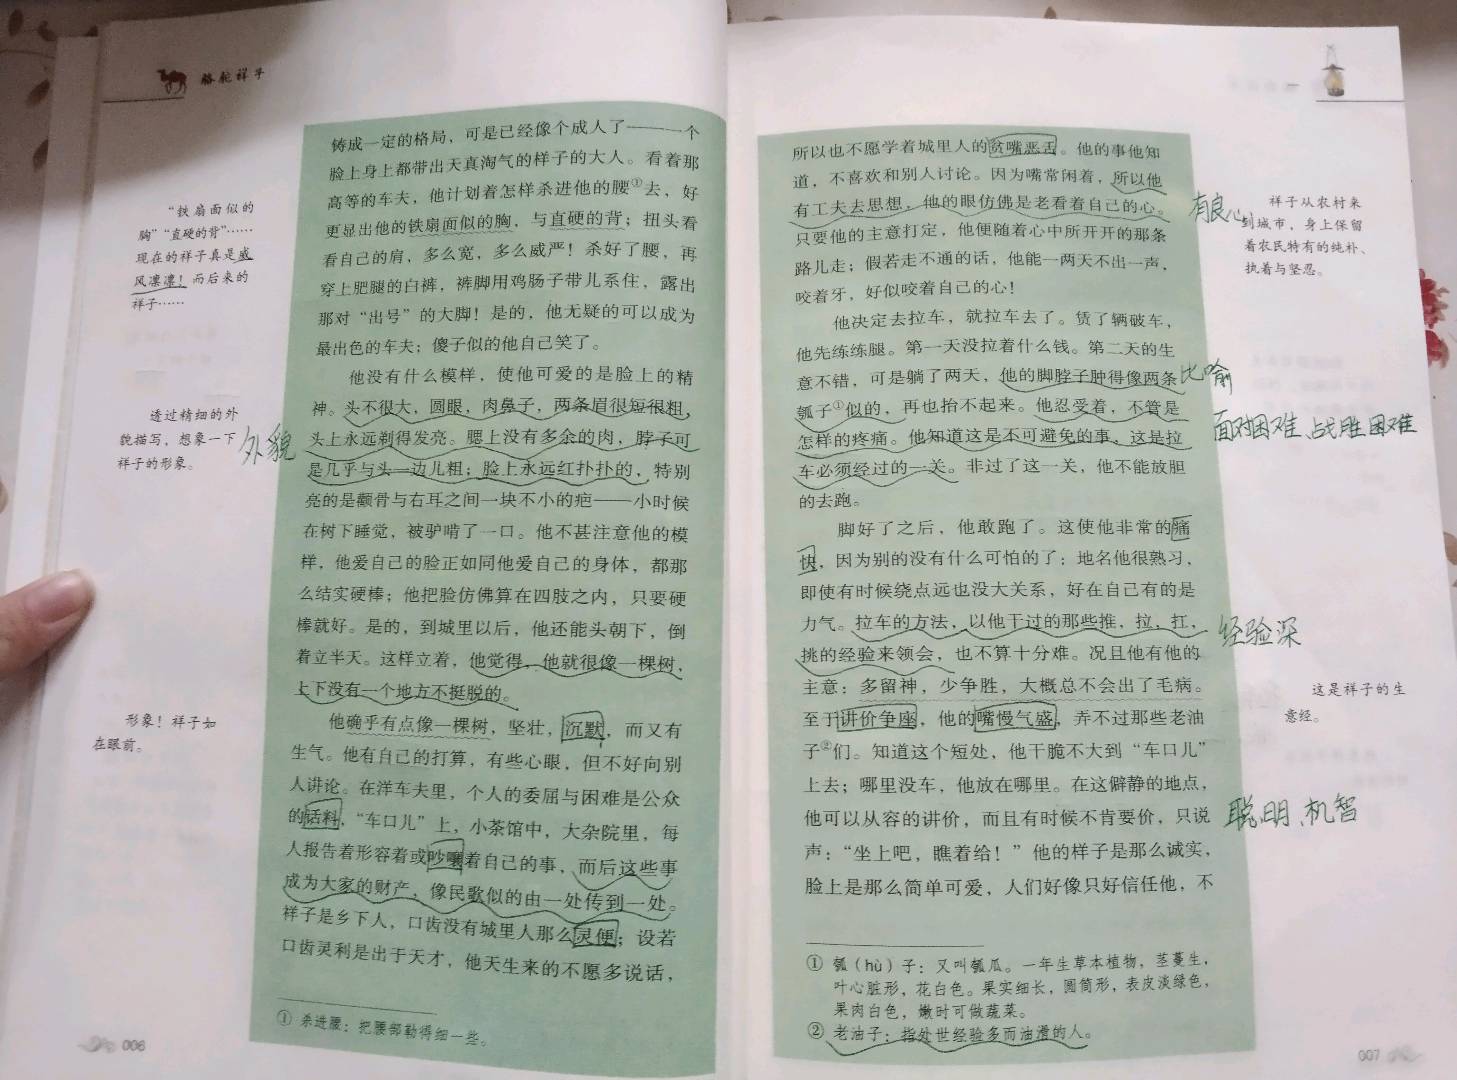 骆驼祥子
“铁扇面似的
胸”“直硬的背”……
现在的祥子真是威
风凛凛！而后来的
祥子……
透过精细的外
貌描写，想象一下
祥子的形象。
外貌
形象！祥子如
在眼前。
铸成一定的格局，可是已经像个成人了——一个
脸上身上都带出天真淘气的样子的大人。看着那
高等的车夫，他计划着怎样杀进他的腰①去，好
更显出他的铁扇面似的胸，与直硬的背；扭头看
看自己的肩，多么宽，多么威严！杀好了腰，再
穿上肥腿的白裤，裤脚用鸡肠子带儿系住，露出
那对“出号”的大脚！是的，他无疑的可以成为
最出色的车夫；傻子似的他自己笑了。
他没有什么模样，使他可爱的是脸上的精
神。头不很大，圆眼，肉鼻子，两条眉很短很粗，
头上永远剃得发亮。腮上没有多余的肉，脖子可
是几乎与头一边儿粗；脸上永远红扑扑的，特别
亮的是颧骨与右耳之间一块不小的疤——小时候
在树下睡觉，被驴啃了一口。他不甚注意他的模
样，他爱自己的脸正如同他爱自己的身体，都那
么结实硬棒；他把脸仿佛算在四肢之内，只要硬
棒就好。是的，到城里以后，他还能头朝下，倒
着立半天。这样立着，他觉得，他就很像一棵树，
上下没有一个地方不挺脱的。
他确乎有点像一棵树，坚壮，沉默，而又有
生气。他有自己的打算，有些心眼，但不好向别
人讲论。在洋车夫里，个人的委屈与困难是公众
的话料，“车口儿”上，小茶馆中，大杂院里，每
人报告着形容着或吵嚷着自己的事，而后这些事
成为大家的财产，像民歌似的由一处传到一处。
祥子是乡下人，口齿没有城里人那么灵便；设若
口齿灵利是出于天才，他天生来的不愿多说话，
① 杀进腰：把腰部勒得细一些。
006
所以也不愿学着城里人的贫嘴恶舌。他的事他知
道，不喜欢和别人讨论。因为嘴常闲着，所以他
有工夫去思想，他的眼仿佛是老看着自己的心。
只要他的主意打定，他便随着心中所开开的那条
路儿走；假若走不通的话，他能一两天不出一声，
咬着牙，好似咬着自己的心！
他决定去拉车，就拉车去了。赁了辆破车，
他先练练腿。第一天没拉着什么钱。第二天的生
意不错，可是躺了两天，他的脚脖子肿得像两条
瓠子①似的，再也抬不起来。他忍受着，不管是
怎样的疼痛。他知道这是不可避免的事，这是拉
车必须经过的一关。非过了这一关，他不能放胆
的去跑。
脚好了之后，他敢跑了。这使他非常的痛
快，因为别的没有什么可怕的了：地名他很熟习，
即使有时候绕点远也没大关系，好在自己有的是
力气。拉车的方法，以他干过的那些推，拉，扛，
挑的经验来领会，也不算十分难。况且他有他的
主意：多留神，少争胜，大概总不会出了毛病。
至于讲价争座，他的嘴慢气盛，弄不过那些老油
子②们。知道这个短处，他干脆不大到“车口儿”
上去；哪里没车，他放在哪里。在这僻静的地点，
他可以从容的讲价，而且有时候不肯要价，只说
声：“坐上吧，瞧着给！”他的样子是那么诚实，
脸上是那么简单可爱，人们好像只好信任他，不
① 瓠（hù）子：又叫瓠瓜。一年生草本植物，茎蔓生，
叶心脏形，花白色。果实细长，圆筒形，表皮淡绿色，
果肉白色，嫩时可做蔬菜。
② 老油子：指处世经验多而油滑的人。
有良心
祥子从农村来
到城市，身上保留
着农民特有的纯朴、
执着与坚忍。
比喻
面对困难、战胜困难
经验深
这是祥子的生
意经。
聪明、机智
007